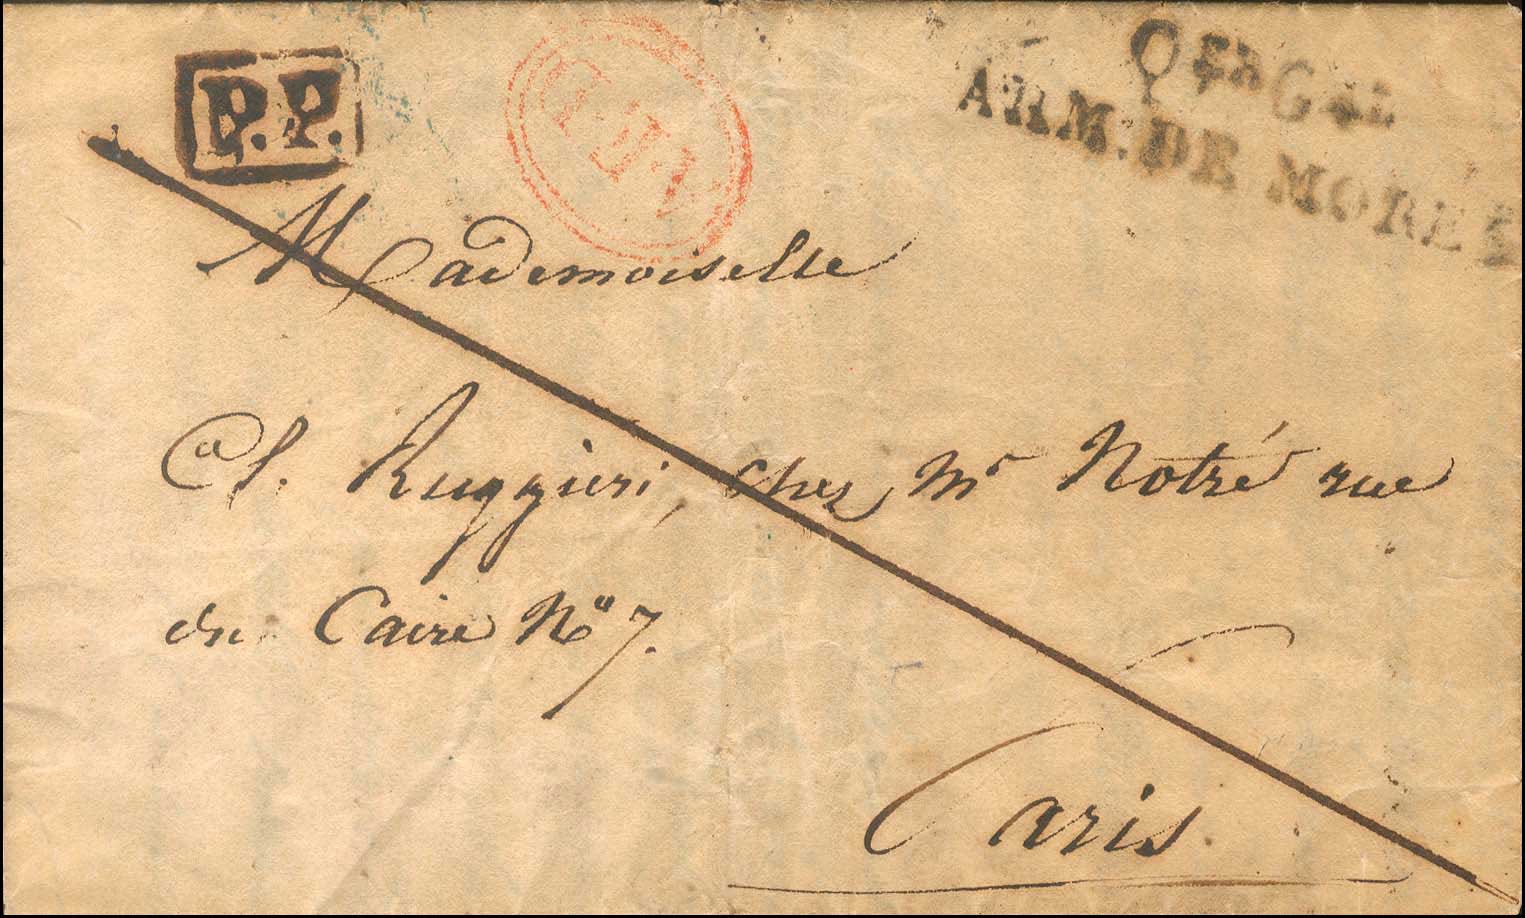 P.P.
Qer Gal
ARM. DE MORÉE
Mademoiselle
Cl. Ruggieri, chez Mr Notré rue
du Caire No 7.
Paris